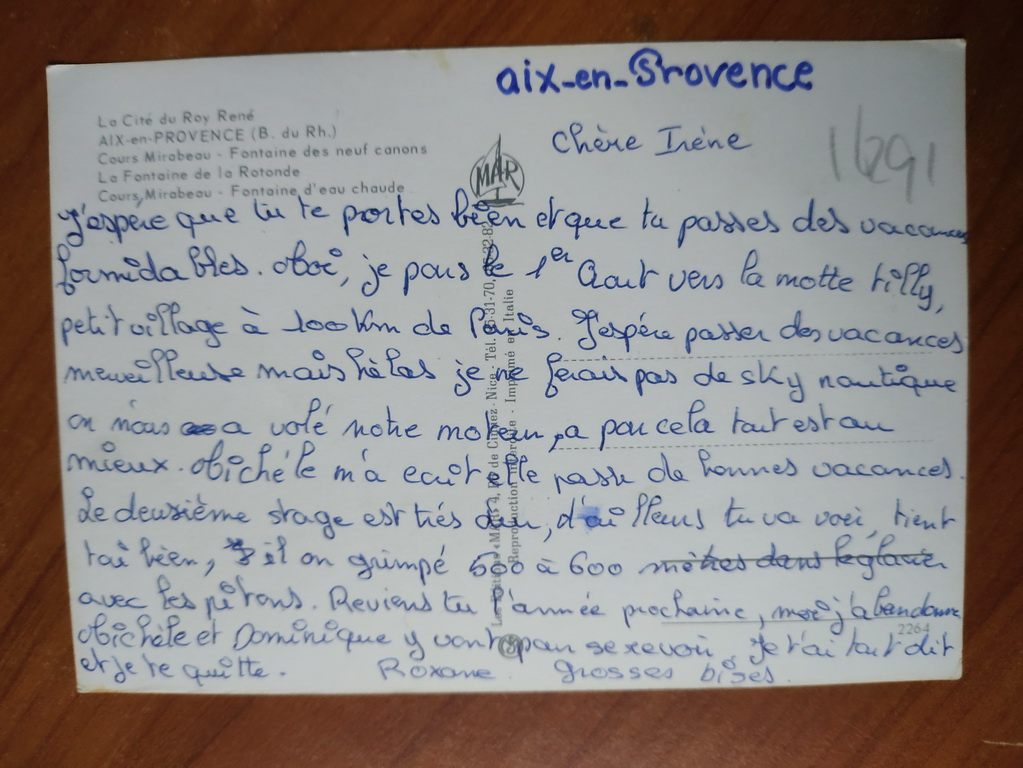 aix-en-Provence
La Cité du Roy René
AIX-en-PROVENCE (B. du Rh.)
Cours Mirabeau - Fontaine des neuf canons
La Fontaine de la Rotonde
Cours Mirabeau - Fontaine d'eau chaude
MAR
chère Irène
1691
J'espère que tu te portes bien et que tu passes des vacances
formidables. Moi, je pars le 1er Aout vers la motte tilly,
petit village à 100 Km de Paris. J'espére passer des vacances
merveilleuse mais hélas je ne ferais pas de sky nautique
on nous a volé notre moteur, a par cela tout est au
mieux. Michéle m'a ecrit elle passe de bonnes vacances.
Le deuxième stage est trés dur, d'ailleurs tu va voir, tient
toi bien, il on grimpé 500 à 600 mètres dans le glacier
avec les pitons. Reviens tu l'année prochaine, moi j'abandonne
Michèle et Dominique y vont pour se revoir. Je t'ai tout dit
et je te quitte. Roxane grosses bises.
de Cimiez - Nice - Tél.
Reproduction interdite - Imprimé en Italie
2264